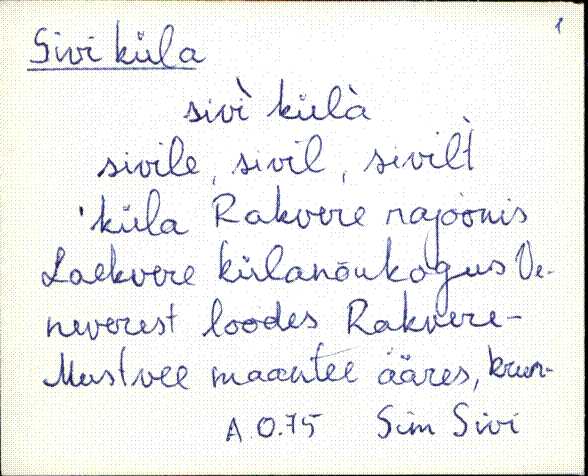 1
Sivi küla
sivì külà
sivile, sivil, sivilt̀
'küla Rakvere rajoonis
Laekvere külanõukogus Ve-
neverest loodes Rakvere-
Mustvee maantee ääres, krun-
A.O.75 Sim Sivi